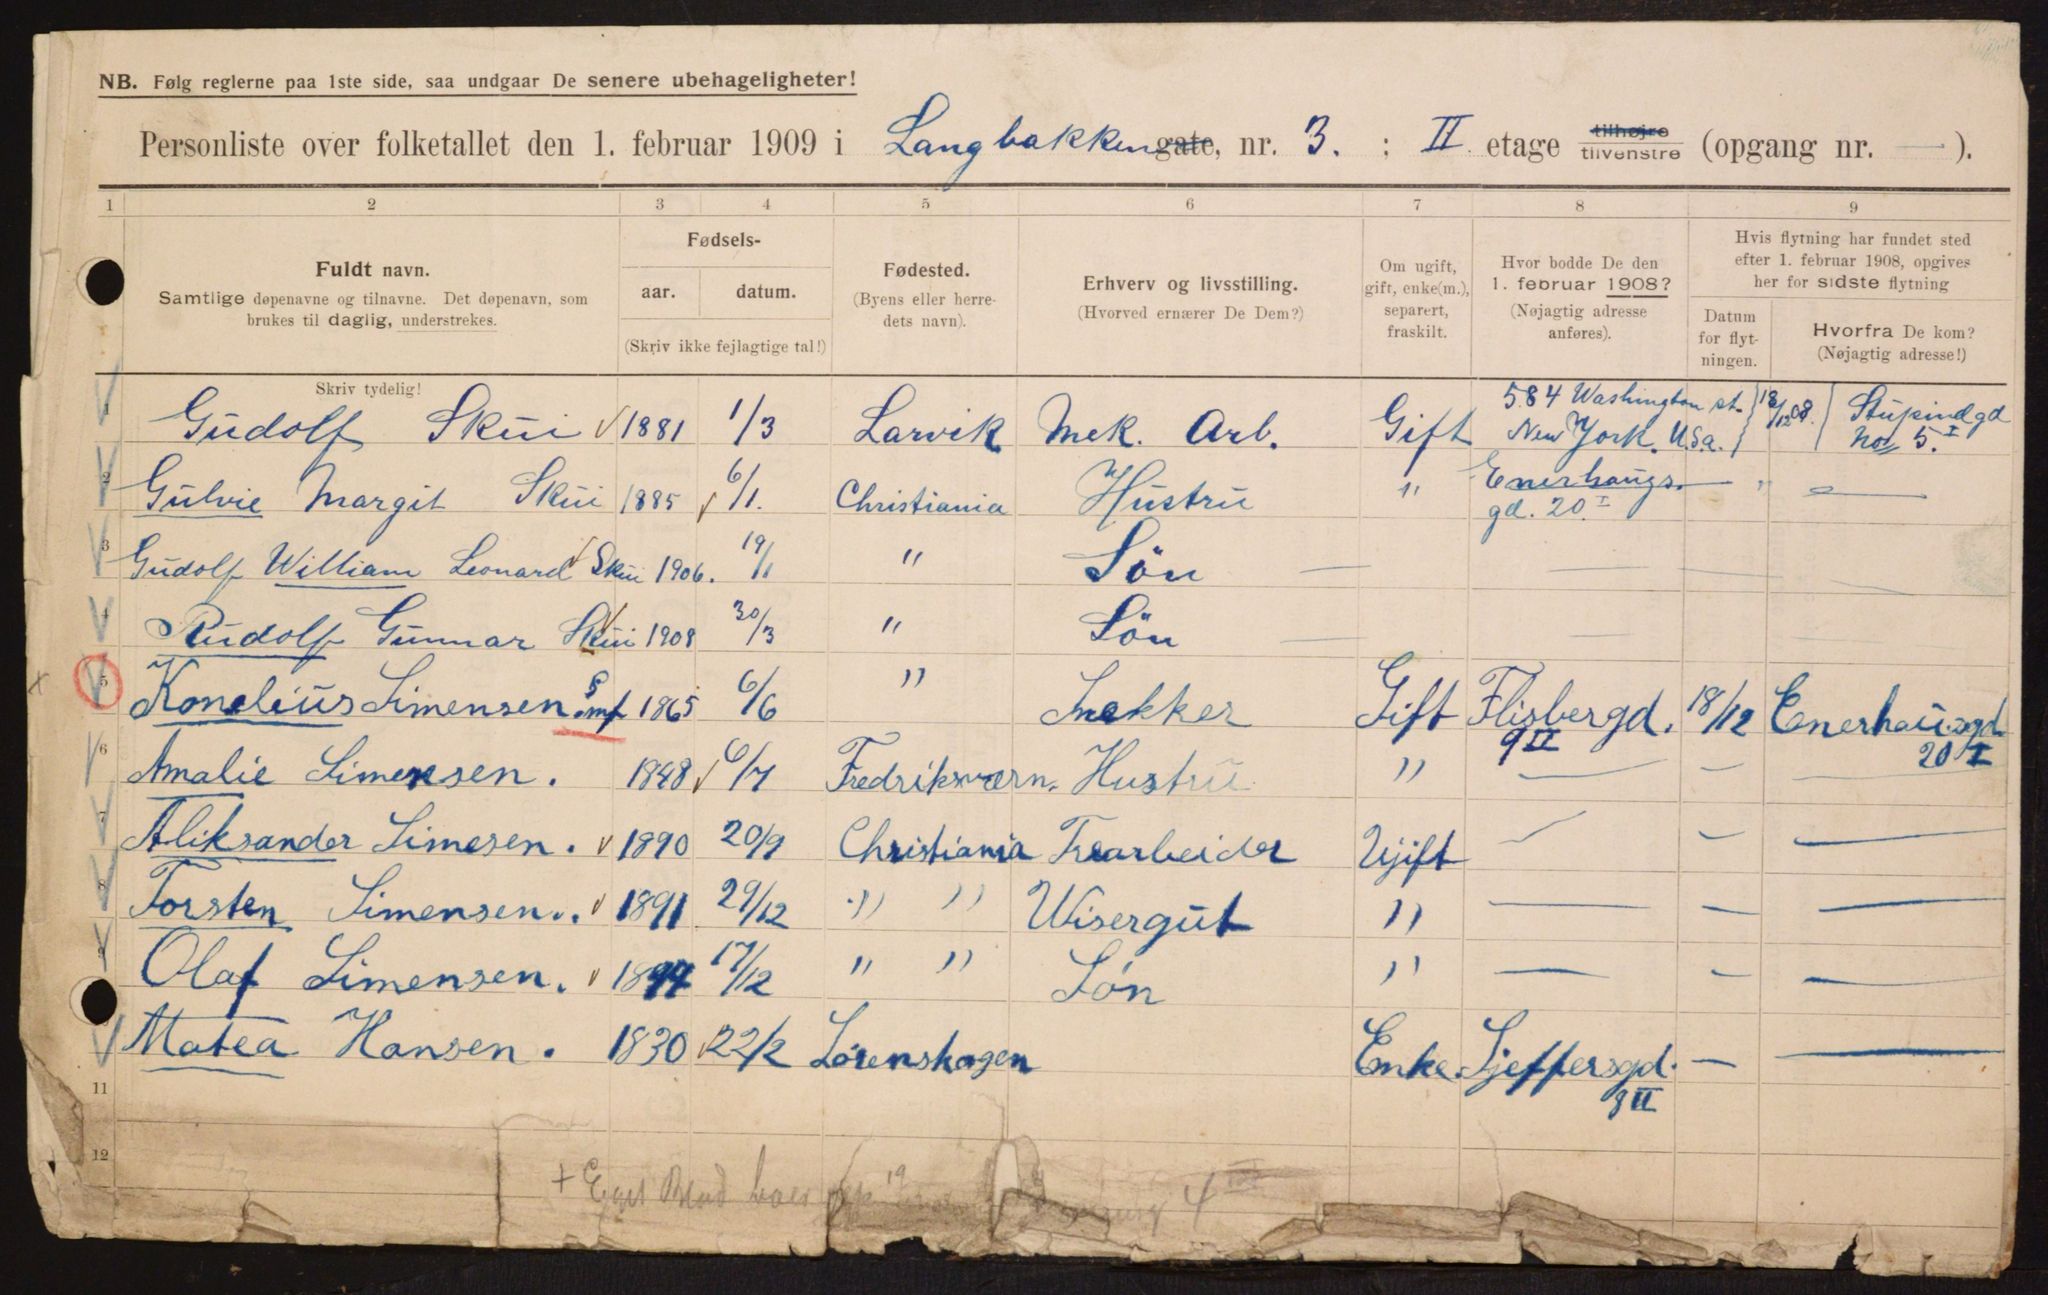 NB. Følg reglerne paa 1ste side, saa undgaar De senere ubehageligheter!
Personliste over folketallet den 1. februar 1909 i Langbakken gate, nr. 3. : II etage tilhøjre tilvenstre (opgang nr. — ).
1 2 3 4 5 6 7 8 9
Fuldt navn.
Samtlige døpenavne og tilnavne. Det døpenavn, som
brukes til daglig, understrekes.
Skriv tydelig!
Fødsels-
aar. datum.
(Skriv ikke fejlagtige tal!)
Fødested.
(Byens eller herre-
dets navn).
Erhverv og livsstilling.
(Hvorved ernærer De Dem?)
Om ugift,
gift, enke(m.),
separert,
fraskilt.
Hvor bodde De den
1. februar 1908?
(Nøjagtig adresse
anføres).
Hvis flytning har fundet sted
efter 1. februar 1908, opgives
her for sidste flytning
Datum
for flyt-
ningen.
Hvorfra De kom?
(Nøjagtig adresse!)
1 Gudolf Skui 1881 1/3 Larvik Mek. Arb. Gift 584 Washington st. New York. U.S.a. 18/12 08. Stupindgd No 5. I
2 Gulvie Margit Skui 1885 6/1. Christiania Hustru " Enerhaugs- gd. 20. I " —
3 Gudolf William Leonard Skui 1906. 19/1 " Sön — — — —
4 Rudolf Gunnar Skui 1908 30/3 " Sön — — — —
5 Konelius Simensen smf 1865 6/6 " Snekker Gift Flisbergd. 9 II 18/12 Enerhaugsgd 20 I
6 Amalie Simensen. 1848 6/7 Fredriksværn. Hustru " — — —
7 Aliksander Simesen. 1890 20/9 Christiania Trearbeider Ugift — — —
8 Torsten Simensen. 1891 29/12 " " Wisergut " — — —
9 Olaf Simensen. 1894 17/12 " " Søn " — — —
Matea Hansen. 1830 22/2 Lørenskogen Enke. Sjeffersgd. 8 II — —
11
12
+ Eget Blad 4